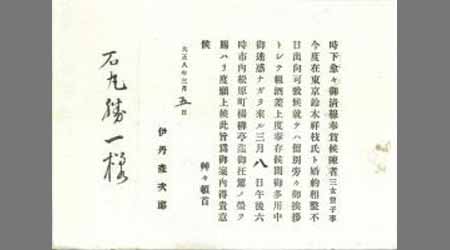 時下愈々御清穆奉賀候陳者三女登子事
今度在東京鈴木祥枝氏ト婚約相整不
日出向可致候就テハ留別旁々御挨拶
トシテ粗酒差上度奉存候間御多用中
御迷惑ナガラ来ル三月八日午後六
時市内松原町楊柳亭御枉駕ノ榮ヲ
賜ハリ度願上候此旨御案内得貴意
候 艸々頓首
大正八年三月五日
伊丹彌次郎
石丸勝一様